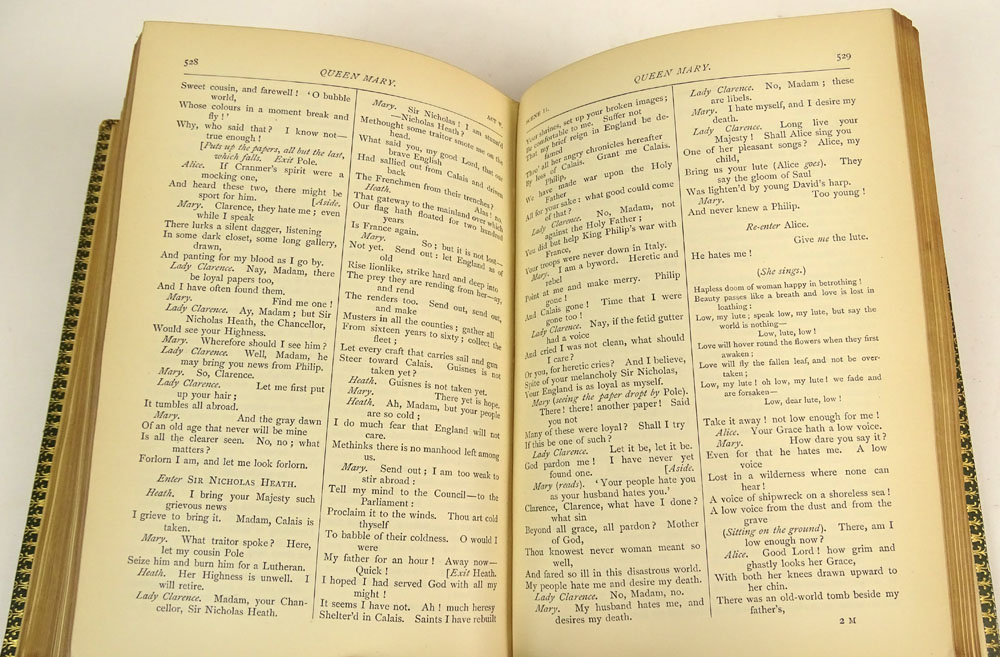 528
QUEEN MARY.
ACT V.
Sweet cousin, and farewell! 'O bubble
world,
Whose colours in a moment break and
fly!'
Why, who said that? I know not—
true enough!
[Puts up the papers, all but the last,
which falls. Exit Pole.
Alice. If Cranmer's spirit were a
mocking one,
And heard these two, there might be
sport for him. [Aside.
Mary. Clarence, they hate me; even
while I speak
There lurks a silent dagger, listening
In some dark closet, some long gallery,
drawn,
And panting for my blood as I go by.
Lady Clarence. Nay, Madam, there
be loyal papers too,
And I have often found them.
Mary. Find me one!
Lady Clarence. Ay, Madam; but Sir
Nicholas Heath, the Chancellor,
Would see your Highness.
Mary. Wherefore should I see him?
Lady Clarence. Well, Madam, he
may bring you news from Philip.
Mary. So, Clarence.
Lady Clarence. Let me first put
up your hair;
It tumbles all abroad.
Mary. And the gray dawn
Of an old age that never will be mine
Is all the clearer seen. No, no; what
matters?
Forlorn I am, and let me look forlorn.
Enter SIR NICHOLAS HEATH.
Heath. I bring your Majesty such
grievous news
I grieve to bring it. Madam, Calais is
taken.
Mary. What traitor spoke? Here,
let my cousin Pole
Seize him and burn him for a Lutheran.
Heath. Her Highness is unwell. I
will retire.
Lady Clarence. Madam, your Chan-
cellor, Sir Nicholas Heath.
Mary. Sir Nicholas! I am stunn'd
—Nicholas Heath?
Methought some traitor smote me on the
head.
What said you, my good Lord, that our
brave English
Had sallied out from Calais and driven
back
The Frenchmen from their trenches?
Heath. Alas! no.
That gateway to the mainland over which
Our flag hath floated for two hundred
years
Is France again.
Mary. So; but it is not lost—
Not yet. Send out: let England as of
old
Rise lionlike, strike hard and deep into
The prey they are rending from her—ay,
and rend
The renders too. Send out, send out,
and make
Musters in all the counties; gather all
From sixteen years to sixty; collect the
fleet;
Let every craft that carries sail and gun
Steer toward Calais. Guisnes is not
taken yet?
Heath. Guisnes is not taken yet.
Mary. There yet is hope.
Heath. Ah, Madam, but your people
are so cold;
I do much fear that England will not
care.
Methinks there is no manhood left among
us.
Mary. Send out; I am too weak to
stir abroad:
Tell my mind to the Council—to the
Parliament:
Proclaim it to the winds. Thou art cold
thyself
To babble of their coldness. O would I
were
My father for an hour! Away now—
Quick! [Exit Heath.
I hoped I had served God with all my
might!
It seems I have not. Ah! much heresy
Shelter'd in Calais. Saints I have rebuilt
SCENE II.
QUEEN MARY.
529
Your shrines, set up your broken images;
Be comfortable to me. Suffer not
That my brief reign in England be de-
famed
Thro' all her angry chronicles hereafter
By loss of Calais. Grant me Calais.
Philip,
We have made war upon the Holy
Father
All for your sake: what good could come
of that?
Lady Clarence. No, Madam, not
against the Holy Father;
You did but help King Philip's war with
France,
Your troops were never down in Italy.
Mary. I am a byword. Heretic and
rebel
Point at me and make merry. Philip
gone!
And Calais gone! Time that I were
gone too!
Lady Clarence. Nay, if the fetid gutter
had a voice
And cried I was not clean, what should
I care?
Or you, for heretic cries? And I believe,
Spite of your melancholy Sir Nicholas,
Your England is as loyal as myself.
Mary (seeing the paper dropt by Pole).
There! there! another paper! Said
you not
Many of these were loyal? Shall I try
If this be one of such?
Lady Clarence. Let it be, let it be.
God pardon me! I have never yet
found one. [Aside.
Mary (reads). 'Your people hate you
as your husband hates you.'
Clarence, Clarence, what have I done?
what sin
Beyond all grace, all pardon? Mother
of God,
Thou knowest never woman meant so
well,
And fared so ill in this disastrous world.
My people hate me and desire my death.
Lady Clarence. No, Madam, no.
Mary. My husband hates me, and
desires my death.
Lady Clarence. No, Madam; these
are libels.
Mary. I hate myself, and I desire my
death.
Lady Clarence. Long live your
Majesty! Shall Alice sing you
One of her pleasant songs? Alice, my
child,
Bring us your lute (Alice goes). They
say the gloom of Saul
Was lighten'd by young David's harp.
Mary. Too young!
And never knew a Philip.
Re-enter Alice.
Give me the lute.
He hates me!
(She sings.)
Hapless doom of woman happy in betrothing!
Beauty passes like a breath and love is lost in
loathing:
Low, my lute; speak low, my lute, but say the
world is nothing—
Low, lute, low!
Love will hover round the flowers when they first
awaken;
Love will fly the fallen leaf, and not be over-
taken;
Low, my lute! oh low, my lute! we fade and
are forsaken—
Low, dear lute, low!
Take it away! not low enough for me!
Alice. Your Grace hath a low voice.
Mary. How dare you say it?
Even for that he hates me. A low
voice
Lost in a wilderness where none can
hear!
A voice of shipwreck on a shoreless sea!
A low voice from the dust and from the
grave
(Sitting on the ground). There, am I
low enough now?
Alice. Good Lord! how grim and
ghastly looks her Grace,
With both her knees drawn upward to
her chin.
There was an old-world tomb beside my
father's,
2 M